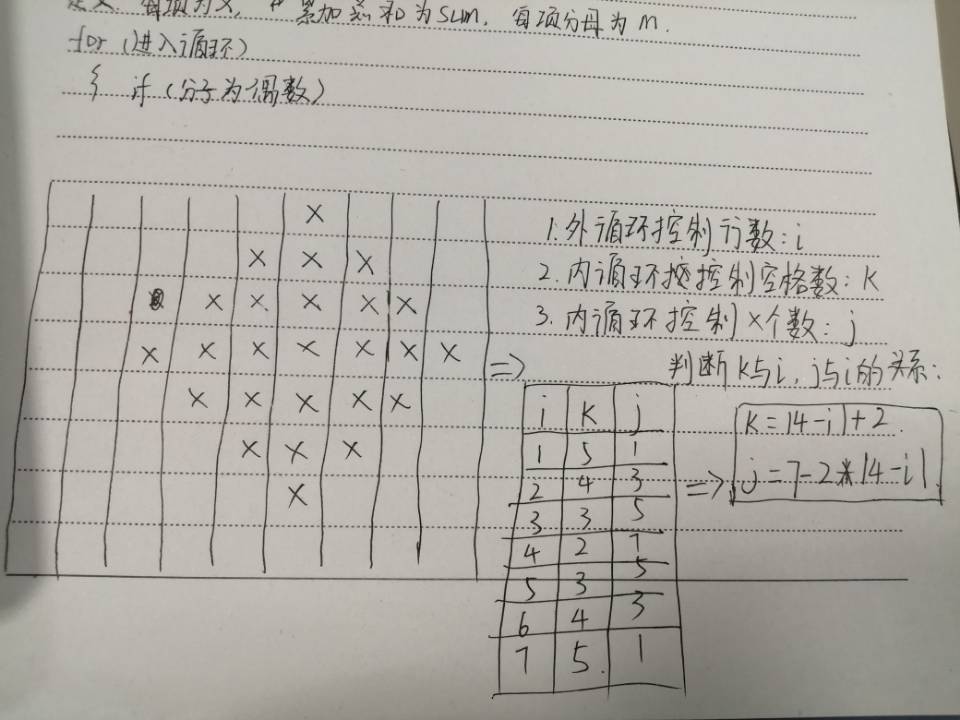 定义 每项为x, 累加总和为sum, 每项分母为m.
for (进入循环)
{ if (分子为偶数)
×
× × ×
× × × × ×
× × × × × × ×
× × × × ×
× × ×
×
1.外循环控制行数:i
2.内循环控制空格数:K
3.内循环控制×个数:j
判断K与i,j与i的关系:
=>
i K j
1 5 1
2 4 3
3 3 5
4 2 7
5 3 5
6 4 3
7 5. 1
=>
K=|4-i|+2.
j=7-2*|4-i|.